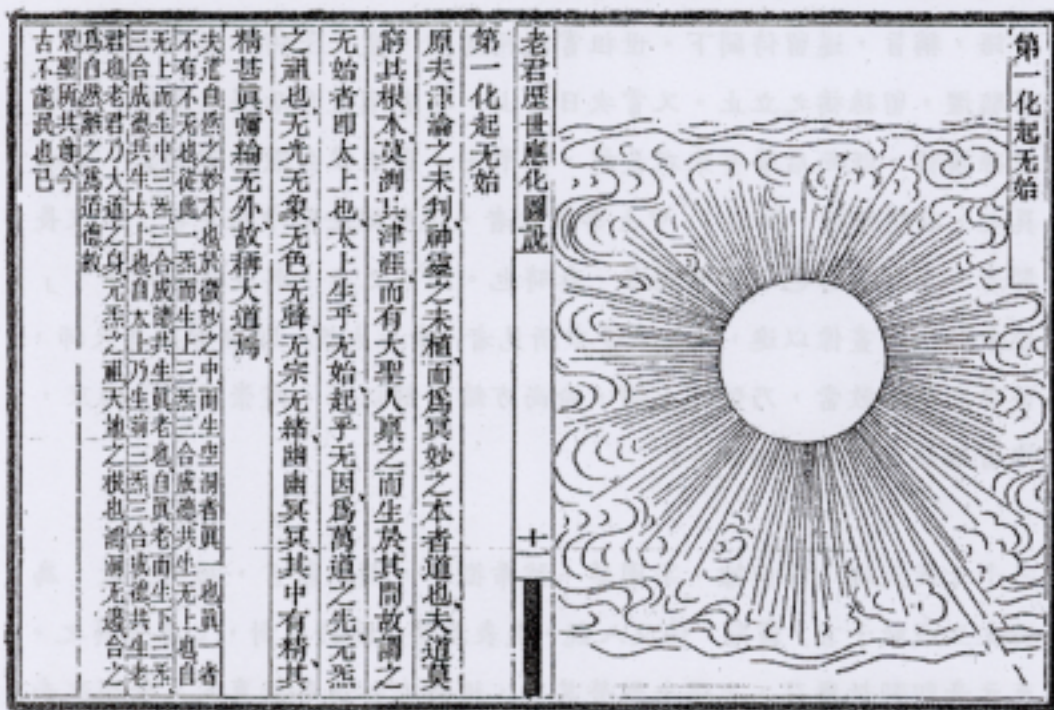 第一化起无始
老君歷世應化圖說
十
第一化起无始
原夫言論之未判神靈之未植而爲冥妙之本者道也夫道莫
窮其根本莫測其津涯而有大聖人稟之而生於其間故謂之
无始者即太上也太上生乎无始起乎无因爲萬道之先元炁
之祖也无光无象无色无聲无宗无緒幽幽冥冥其中有精其
精甚眞彌綸无外故稱大道焉
夫道自然之妙本也於微妙之中而生空洞者眞一也眞一者
不有不无也從此一炁而生上三炁三合成德共生无上也自
无上而生中三炁三合成德共生眞老也自眞老而生下三炁
三合成德共生太上也自太上乃生前三炁三合成德共生老
君也老君乃大道之身元炁之祖天地之根也濛洞无邊合之
爲自然離之爲道德故
眾聖所共尊今
古不能泯也已